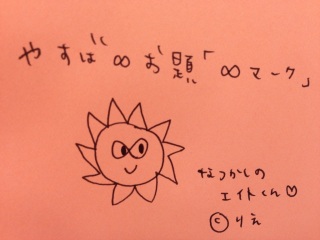 やすば∞お題「∞マーク」
なつかしの
エイトくん♡
©りえ